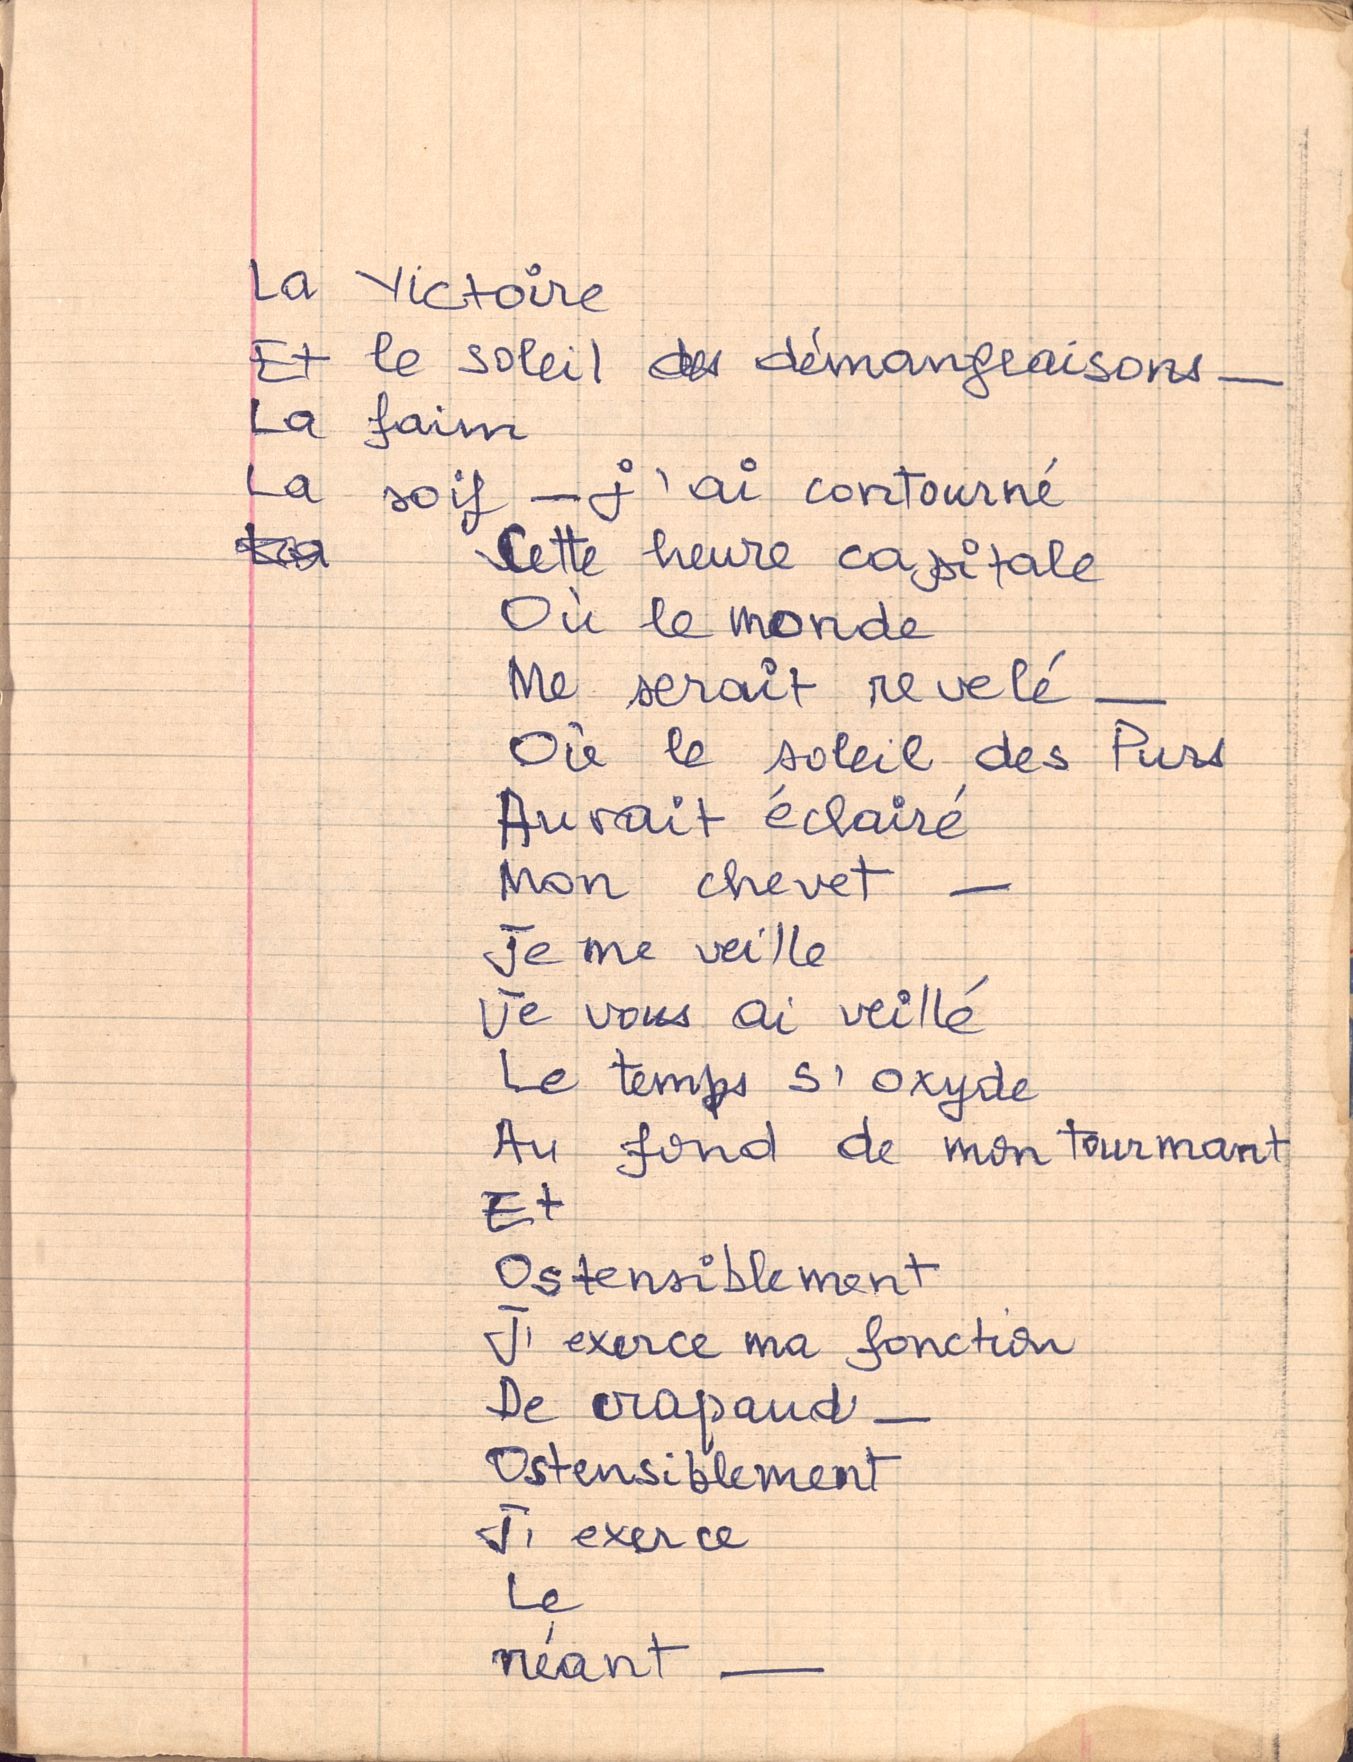 La Victoire
Et le soleil des démangeaisons —
La faim
La soif — j'ai contourné
Cette heure capitale
Où le monde
Me serait revelé —
Où le soleil des Purs
Aurait éclairé
Mon chevet —
Je me veille
Je vous ai veillé
Le temps s'oxyde
Au fond de mon tourmant
Et
Ostensiblement
J'exerce ma fonction
De crapaud —
Ostensiblement
J'exerce
Le
néant —